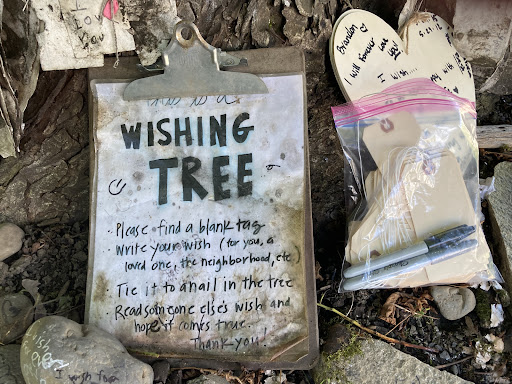 I ♡
You
This is a
WISHING
TREE
· Please find a blank tag
· Write your wish (for you, a
loved one, the neighborhood, etc.)
· Tie it to a nail in the tree
· Read someone else's wish and
hope it comes true.
Thank you!
Brandon
I will forever love
you
I wish....
I wish for